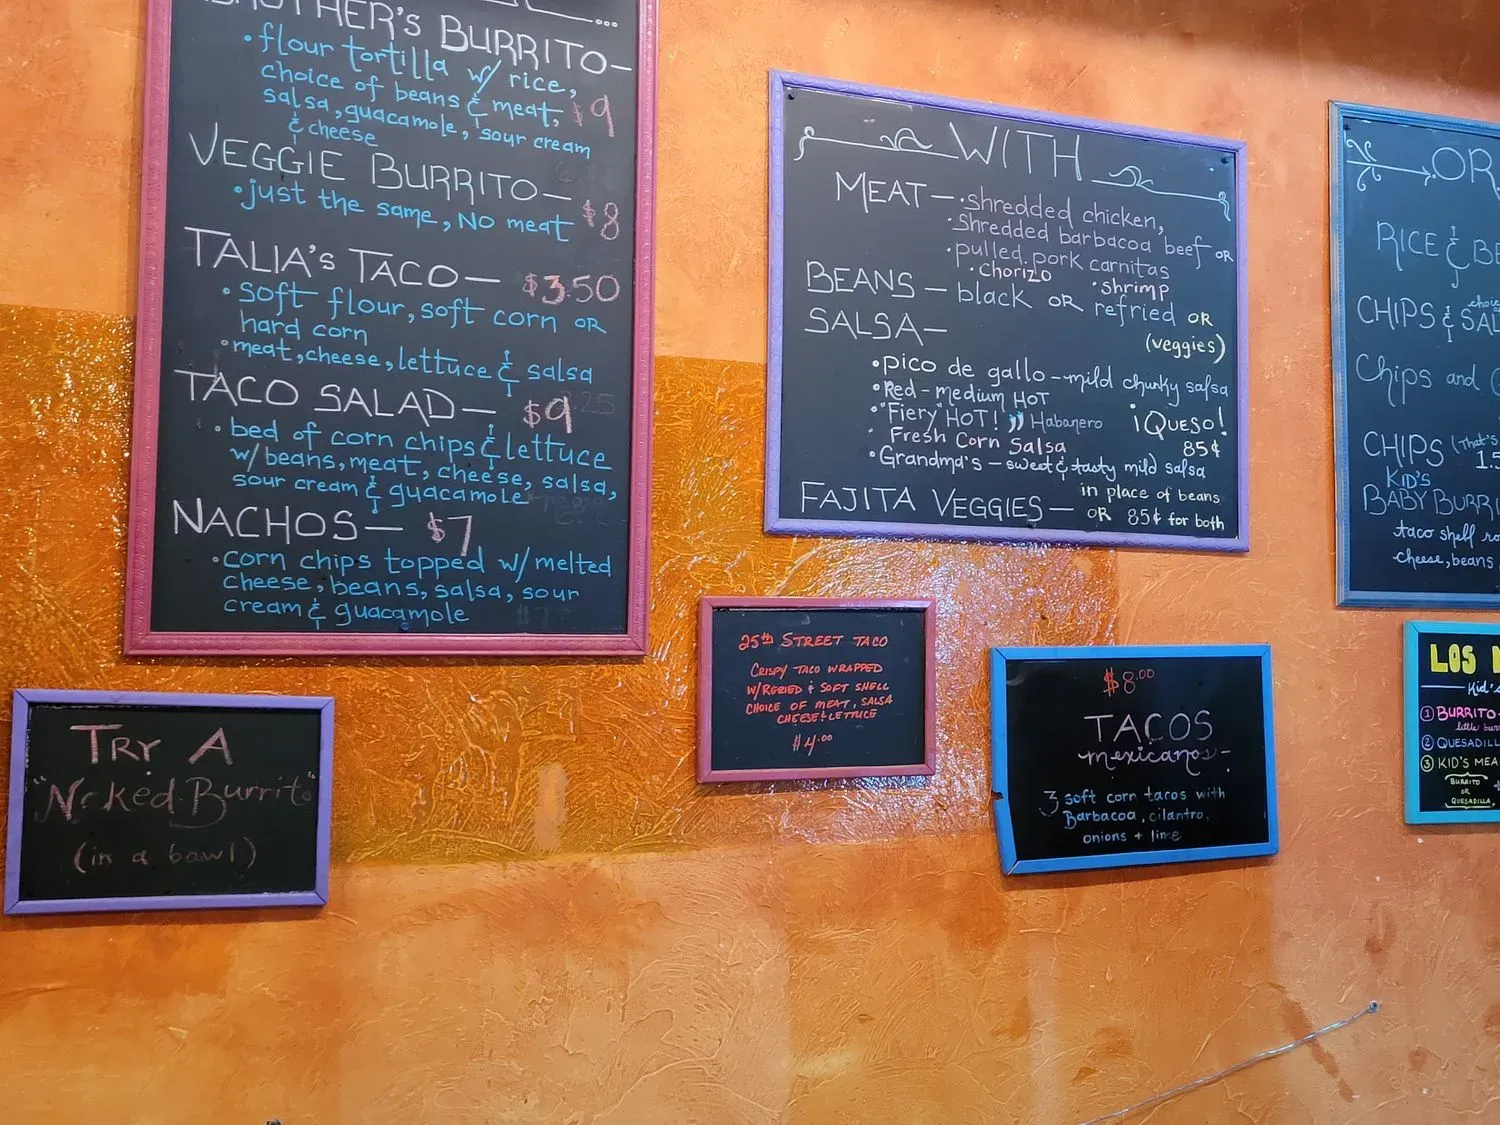 BURRITO-
• flour tortilla w/ rice,
choice of beans & meat, $9
salsa, guacamole, sour cream
& cheese
VEGGIE BURRITO-
• just the same, NO meat $8
TALIA's TACO- $3.50
• soft flour, soft corn OR
hard corn
• meat, cheese, lettuce & salsa
TACO SALAD- $9
• bed of corn chips & lettuce
w/ beans, meat, cheese, salsa,
sour cream & guacamole
NACHOS- $7
• corn chips topped w/ melted
cheese, beans, salsa, sour
cream & guacamole
WITH
MEAT- • shredded chicken,
• Shredded barbacoa beef OR
• pulled pork carnitas
• chorizo • shrimp
BEANS- black OR refried OR
(veggies)
SALSA-
• pico de gallo - mild chunky salsa
• Red - medium HOT
• "Fiery" HOT! Habanero
• Fresh Corn Salsa
• Grandma's - sweet & tasty mild salsa
¡QUESO!
85¢
FAJITA VEGGIES- in place of beans
OR 85¢ for both
OR
RICE &
CHIPS &
Chips and
CHIPS (That's
1.5
KID'S
BABY
taco shell
cheese, beans
TRY A
"Naked Burrito"
(in a bowl)
25th STREET TACO
CRISPY TACO WRAPPED
W/REFRIED & SOFT SHELL
CHOICE OF MEAT, SALSA
CHEESE & LETTUCE
$4.00
$8.00
TACOS
mexicanos-
3 soft corn tacos with
Barbacoa, cilantro,
onions + lime
LOS
Kid's
① BURRITO-
little
② QUESADILL
③ KID'S MEA
BURRITO
OR
QUESADILLA,